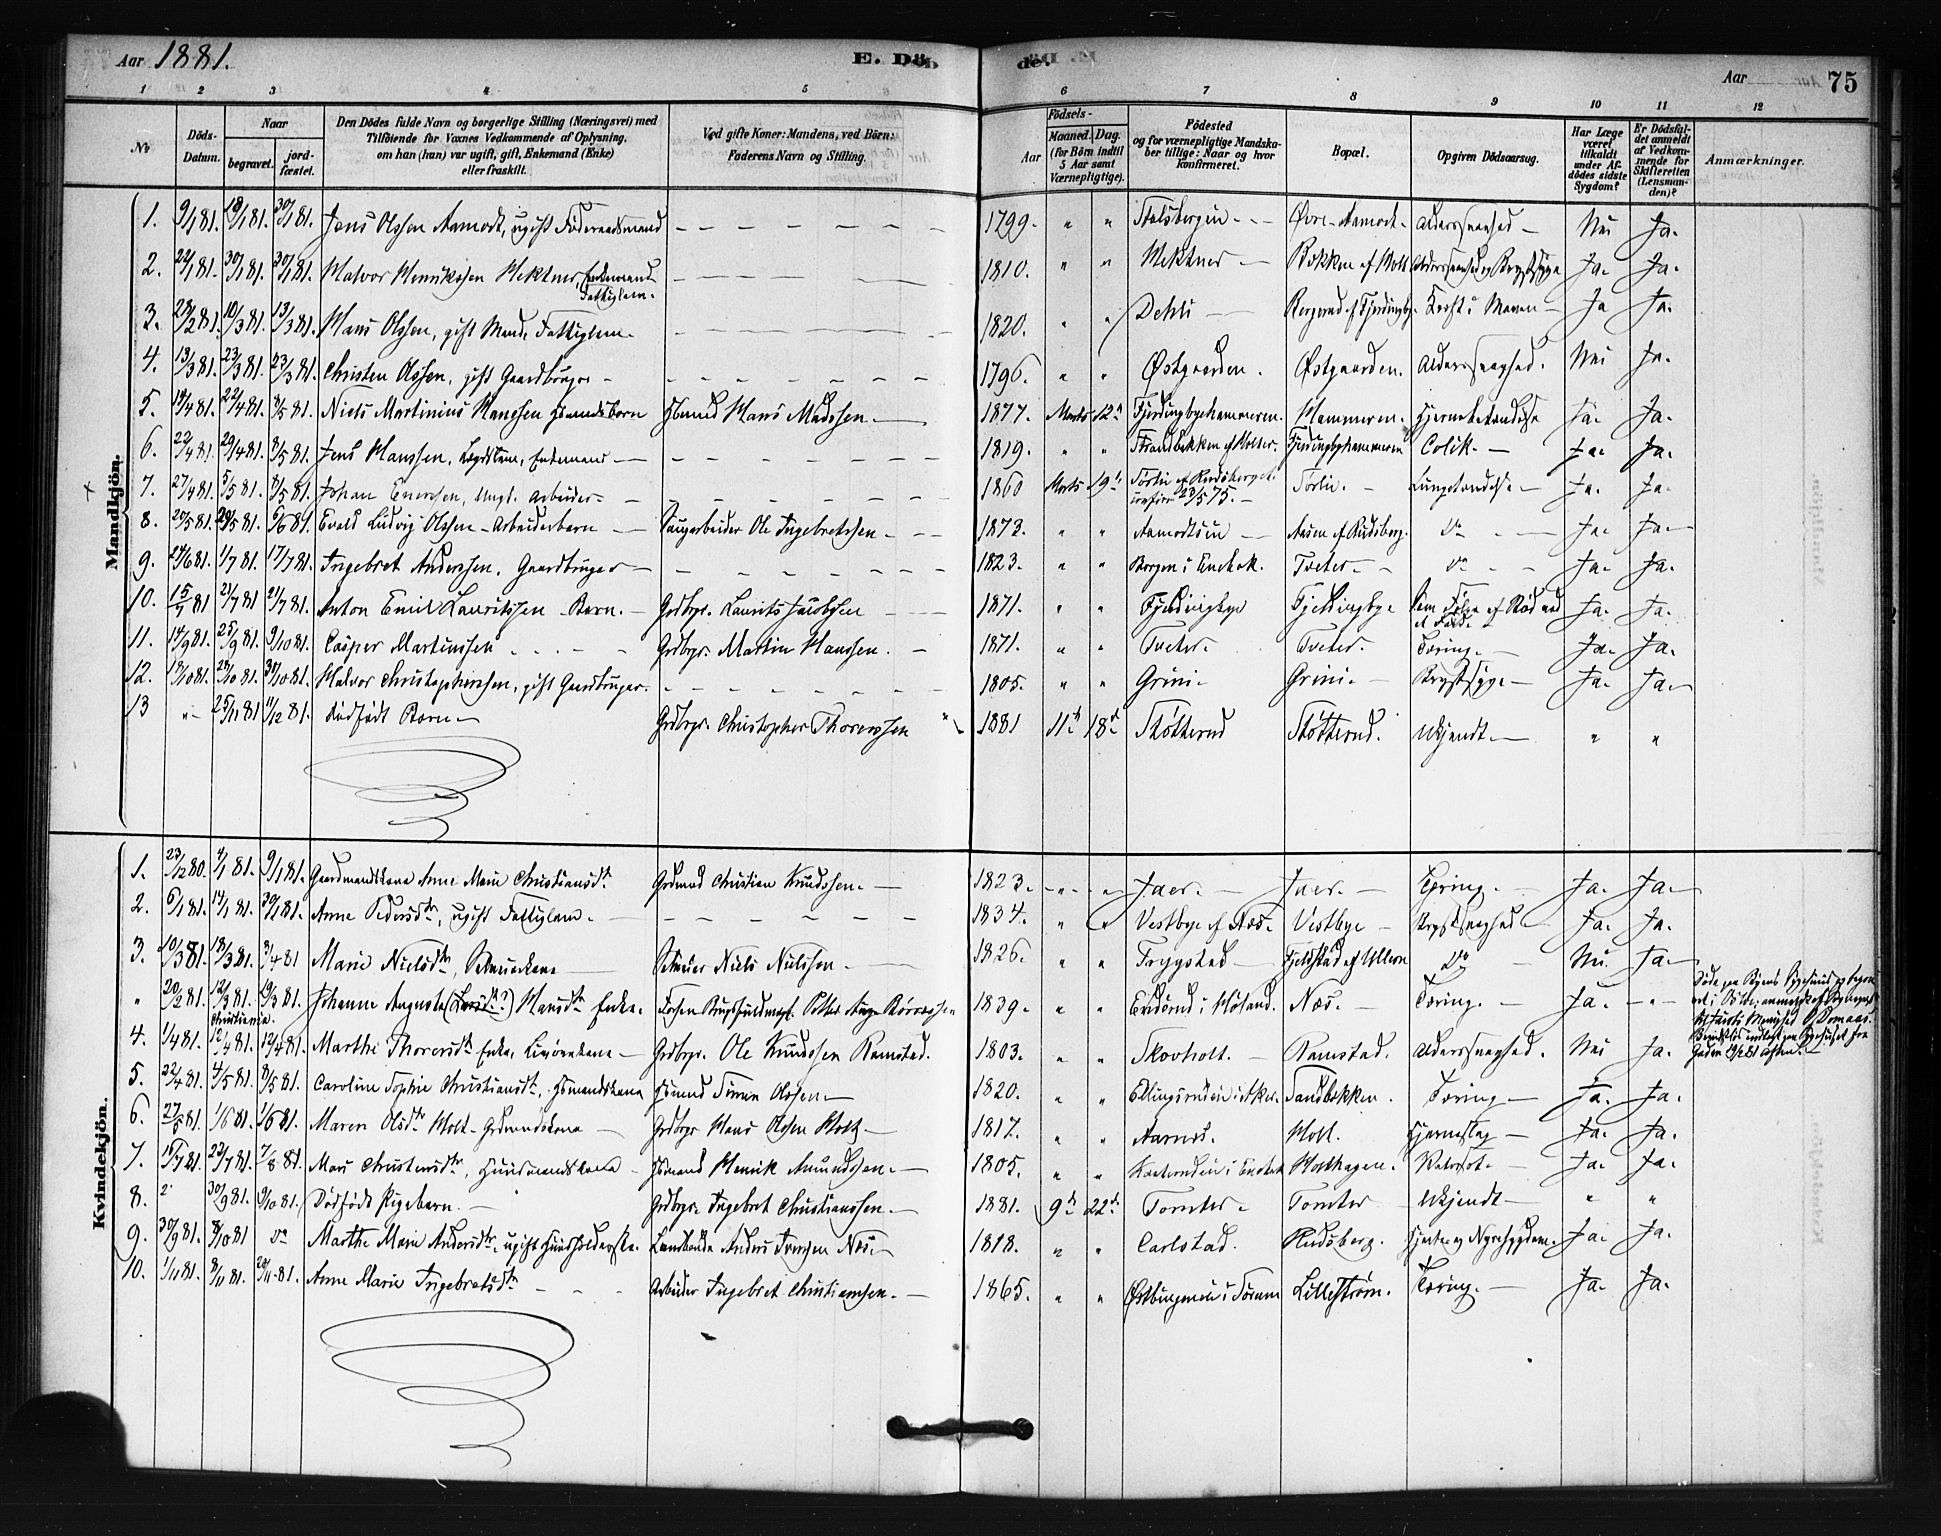 Aar 1881. E. Döb de. Aar 75
1 2 3 4 5 6 7 8 9 10 11 12
No Döds-Datum. Naar begravet. jord-fæstet. Den Dödes fulde Navn og borgerlige Stilling (Næringsvei) med Tilföiende for Voxnes Vedkommende af Oplysning, om han (hun) var ugift, gift, Enkemand (Enke) eller fraskilt. Ved gifte Koner: Mandens, ved Börn: Faderens Navn og Stilling. Aar Födsels- Maaned. Dag. (for Börn indtil 5 Aar samt Værnepligtige). Födested og for værnepligtige Mandskaber tillige: Naar og hvor konfirmeret. Bopæl. Opgiven Dödsaarsag. Har Læge været tilkaldt under Afdödes sidste Sygdom? Er Dödsfaldet anmeldt af Vedkommende for Skifteretten (Lensmanden)? Anmærkninger.
Mandkjön.
1. 9/1 81. 18/1 81. 30/1 81. Jens Olssen Aamodt, ugift Föderaadsmand 1799. " " Stalsbergeie Øvre-Aamodt. Alderssvaghed Nei Ja.
2. 22/1 81. 30/1 81. 30/1 81. Halvor Henrikssen Hektner, Enkemand Fattiglem. 1810. " " Hektner Bokken af Holt Alderssvaghed og Brystsyge Ja. Ja.
3. 28/2 81. 10/3 81. 13/3 81. Hans Olssen, gift Mand. Fattiglem. 1820. " " Dehli Kræft i Maven Ja Ja.
4. 13/3 81. 23/3 81. 23/3 81. Christen Olssen, gift Gaardbruger 1796. " " Østgaarden. Østgaarden. Alderssvaghed. Nei Ja.
5. 14/4 81. 22/4 81. 8/5 81. Niels Martinius Hanssen Hsmandsbarn Hsmd Hans Madssen. 1877. Marts 12te Fjerdingbyehammeren. Hammeren. Hjernebetændelse Ja. Ja.
6. 22/4 81. 29/4 81. 8/5 81. Jens Hanssen, Lægdslem, Enkemand 1819. " " Strandbakken af Holter. Fjerdingbyhammeren Colik. Ja. Ja.
7. 27/4 81. 5/5 81. 8/5 81. Johan Enersen, Ungk. Arbeider 1860 Marts 19de Torlie af Rudsberget. confirm 23/5 75. Torlie. Lungebetændelse Ja. Ja.
8. 20/5 81. 29/5 81. 6/6 81. Evald Ludvig Olssen Arbeiderbarn Saugarbeider Ole Ingebretssen. 1873. " " Aamodteie Aasen af Rudsberg. do Ja. Ja
9. 24/6 81. 1/7 81. 17/7 81. Ingebret Anderssen. Gaardbruger 1823. " " Borgen i Enebak. Tveter. do Ja. Ja.
10. 15/7 81 21/7 81 21/7 81. Anton Emil Lauritssen Barn. Grdbrgr. Laurits Jacobssen 1871. " " Fjerdingbye Fjerdingbye Som Følge af Stød ved et Fald. Ja. Ja.
11. 14/9 81. 25/9 81. 9/10 81. Casper Martinssen Grdbrgr. Martin Hanssen. 1871. " " Tveter. Tveter. Tæring. Ja. Ja.
12. 19/10 81. 28/10 81. 30/10 81. Halvor Christopherssen, gift Gaardbruger. 1805. " " Grini. Grini. Brystsyge Ja. Ja.
13 " 25/11 81 11/12 81. Dødfødt Barn Grdbrgr. Christopher Thorerssen 1881 11te 18de Støtterud Støtterud. Ukjendt " "
Kvindekjön.
1. 23/12 80. 4/1 81. 9/1 81. Gaardmandskone Anne Marie Christiansdtr Grdmd Christian Knudssen. 1823. " " Jaer. Jaer. Tæring. Ja. Ja
2. 6/1 81. 14/1 81. 30/1 81. Anne Pedersdtr, ugift Fattiglem. 1834. " " Vestbye af Næs. Vestbye Brystsvaghed Ja. Ja.
3. 10/3 81. 18/3 81. 3/4 81 Marie Nielsdtr, Selveierkone Selveier Niels Nielssen. 1826. " " Frygstad Fjeldstad af Ullern do Nei. Ja
" 20/2 81. 12/3 81. Christiania. 19/3 81. Johanne Augusta Hansdtr Enke. 1839. " " Enderud i Høland. Næs. Tæring. Ja. "
4. 1/4 81. 12/4 81. 12/4 81. Marthe Thorersdtr Enke, Grdbrgr. Ole Knudssen Ramstad. 1803. " " Skovholt. Ramstad. Alderssvaghed. Nei Ja.
5. 22/4 81. 4/5 81. 8/5 81. Caroline Sophie Christiansdtr. Hsmandskone Hsmd Simen Olssen 1820. " " Ellingsrudeie i Aker. Sandbekken. Tæring Ja. Ja.
6. 27/5 81. 1/6 81. 1/6 81. Maren Olsdtr Holt. Grdmandskone Grdbrgr Hans Olssen Holt 1817. " " Aarnes. Holt. Hjerneslag Ja. Ja.
7. 16/7 81. 23/7 81. 7/8 81. Mari Christensdtr, Huusmandskone Hsmand Henrik Amundssen. 1805. " " Holthagen. Vatersot. Ja. Ja.
8. " 30/9 81. 9/10 81. Dødfødt Pigebarn. Grdbrgr. Ingebret Christianssen. 1881. 9de 22de Tomter. Tomter Ukjendt " "
9. 30/9 81. 8/10 81 do Marthe Marie Andersdtr, ugift Huusholderske. Anders Iversen Næs. 1818. " " Carlstad. Rudsberg. Hjerte og Nyresygdom. Ja. Ja.
10. 1/11 81. 8/11 81. 20/11 81. Anne Marie Ingebretsdtr Arbeider Ingebret Christianssen. 1865. " " i Sørum Lillestrøm. Tæring. Ja. Ja.